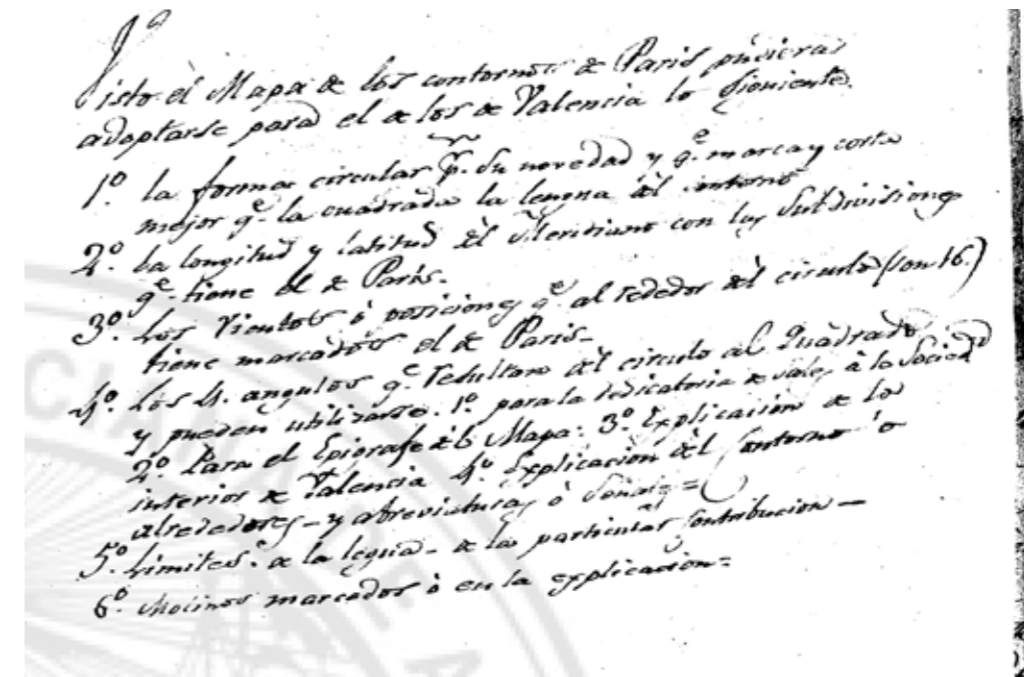 Visto el Mapa de los contornos de Paris pudiera
adoptarse para el de los de Valencia lo siguiente.
1º. la forma circular pr. su novedad y qe. marca y corta
mejor qe. la cuadrada la legua del contorno
2º. La longitud y latitud del Meridiano con las subdivisiones
qe. tiene el de Paris.
3º. Los Vientos ò posiciones qe. al rededor del circulo (son 16.)
tiene marcados el de Paris.
4º. Los 4. angulos qe. resultan del circulo al Quadrado,
y pueden utilizarse. 1º. para la dedicatoria à la Sociedd
2º. Para el Epigrafe del Mapa: 3º. Explicacion de lo
interior de Valencia 4º. Explicacion del Contorno ò
alrededores - y abreviaturas ò Señales =
5º. Limites. de la legua - de la particular Contribucion -
6º. Molinos marcados ò en la explicacion =
CIA
DE
A